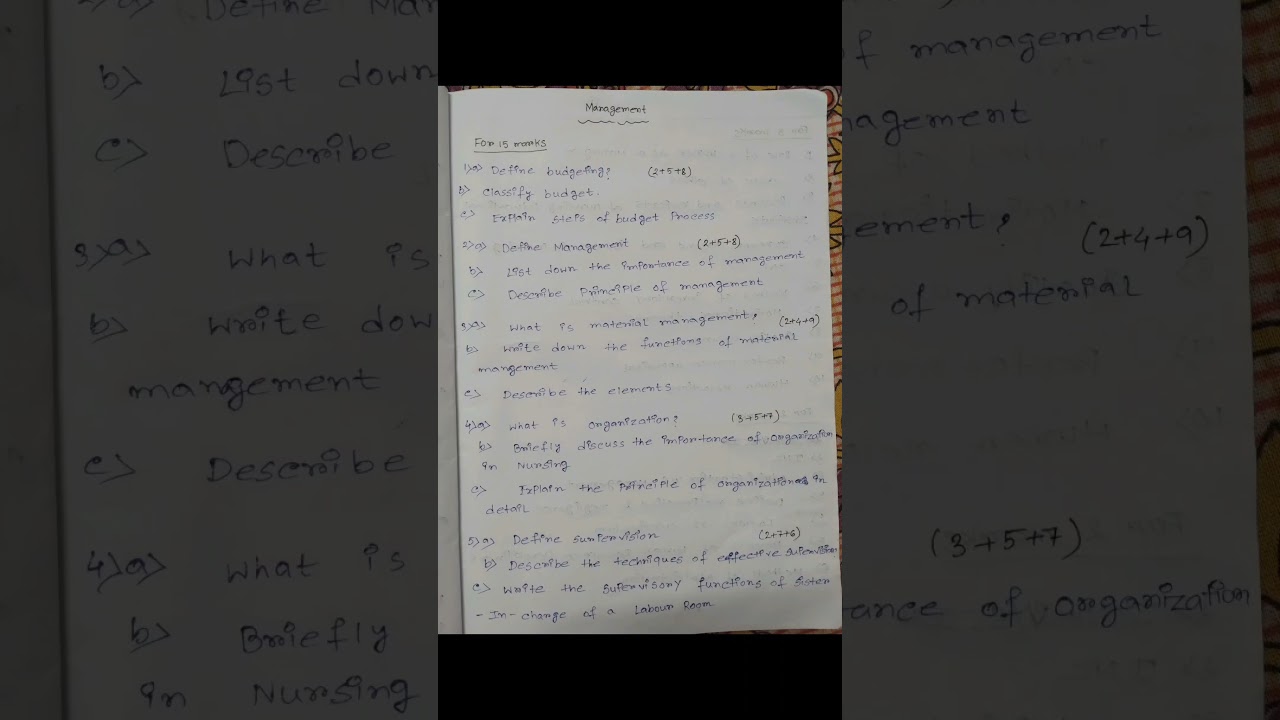 Management
For 15 marks
1) a) Define budgeting? (2+5+8)
b) Classify budget.
c) Explain steps of budget process
2) a) Define Management (2+5+8)
b) List down the importance of management
c) Describe Principle of management
3) a) What is material management? (2+4+9)
b) Write down the functions of material
mangement
c) Describe the elements
4) a) What is organization? (3+5+7)
b) Briefly discuss the importance of organization
in Nursing
c) Explain the principle of organization in
detail
5) a) Define supervision (2+7+6)
b) Describe the techniques of effective supervision
c) Write the supervisory functions of sister
- In-charge of a Labour Room